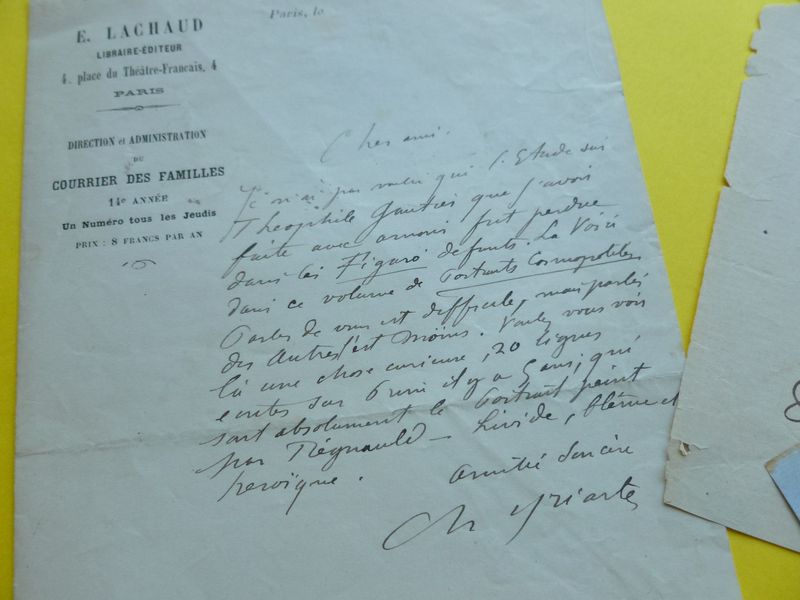 E. LACHAUD
LIBRAIRE-ÉDITEUR
4, place du Théâtre-Français, 4
PARIS
Paris, le
DIRECTION et ADMINISTRATION
DU
COURRIER DES FAMILLES
14e ANNÉE
Un Numéro tous les Jeudis
PRIX : 8 FRANCS PAR AN
Cher ami.
Je n'ai pas voulu qui l'Etude sur
Théophile Gautier que j'avois
faite avec amour fut perdue
dans les Figaro défunts. La Voici
dans ce volume de Portraits Cosmopolites
Parler de vous est difficile, mais parler
des Autres l'est moins. Voulez vous voir
là une chose curieuse, 20 lignes
écrites sur Prim il y a 5 ans, qui
sont absolument le Portrait peint
par Régnauld — Livide, blême et
heroïque.
Amitié Sincère
Ch Yriarte